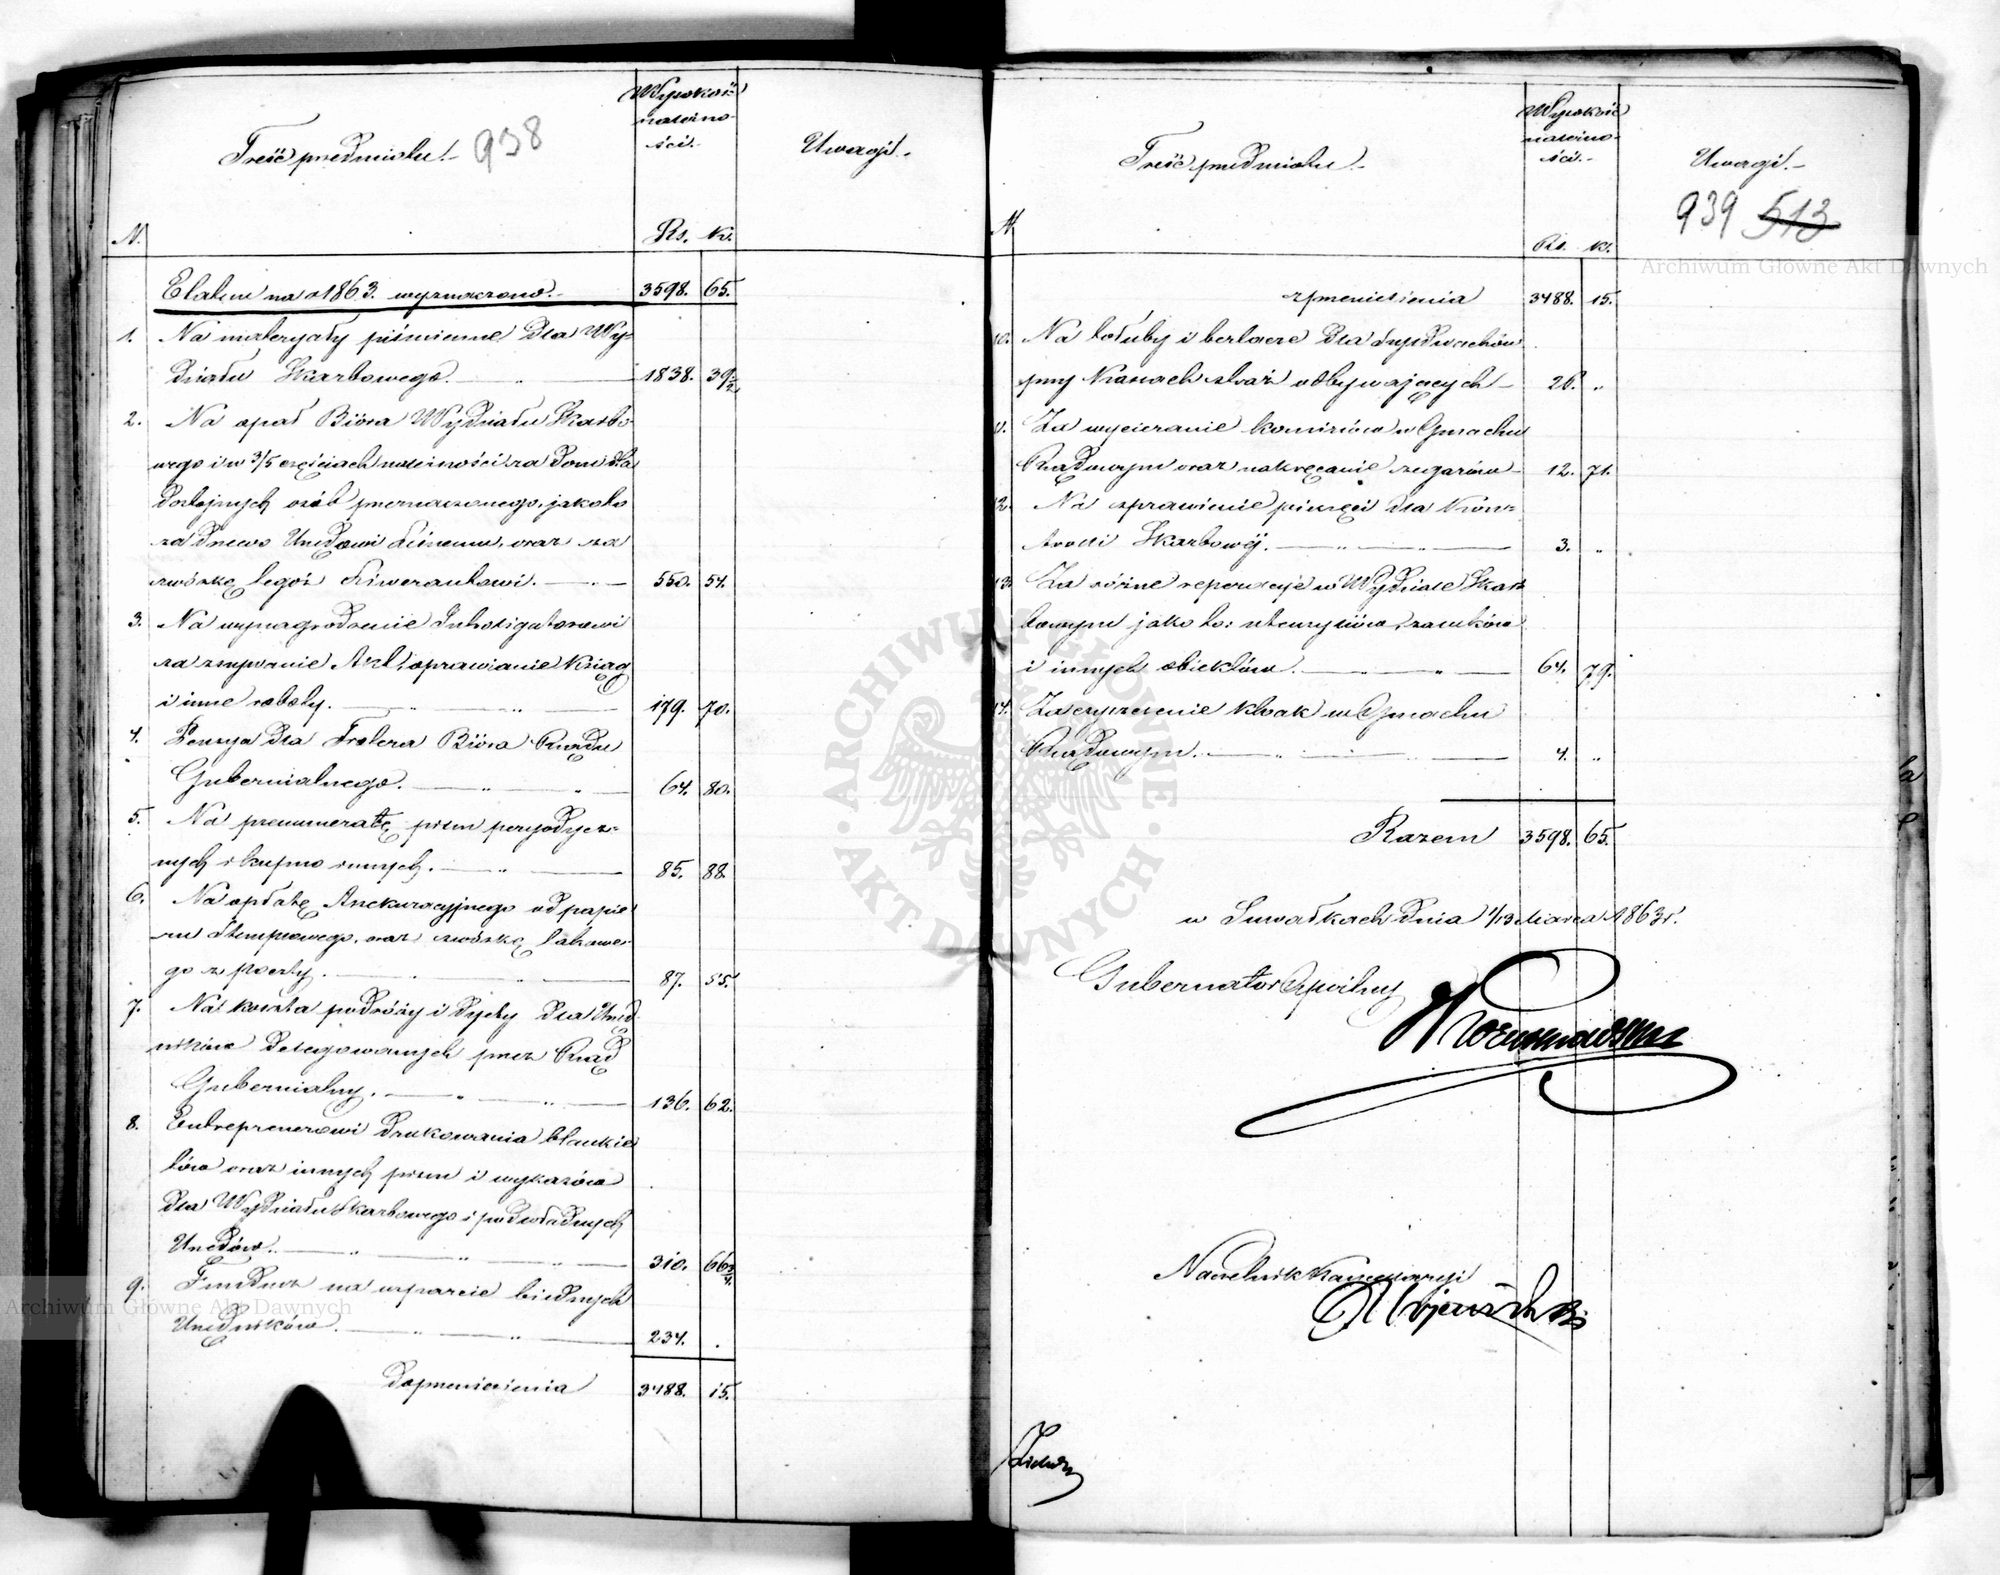 Treść przedmiotu.
938
Wysokość
należno-
ści.
Uwagi.
N.
Rs. k.
Etatem na r. 1863. wyznaczono. 3598. 65.
1. Na materyały piśmienne dla Wy-
działu Skarbowego. 1838. 39½
2. Na opał Bióra Wydziału Skarbo-
wego i w 3/5 częściach należności za Dom dla
dostojnych osób przeznaczonego, jako to
za drzewo Urzędowi Leśnemu, oraz za
zwózkę tegoż Liwerantowi. 550. 54.
3. Na wynagrodzenie Introligatorowi
za zszywanie Akt, oprawianie Ksiąg
i inne roboty. 179. 70.
4. Pensya dla Frotera Bióra Rządu
Gubernialnego. 64. 80.
5. Na prenumeratę pism peryodycz-
nych i kupno innych. 85. 88.
6. Na opłatę Assekuracyjnego od papie-
ru Stemplowego, oraz zwózkę takowe-
go z poczty. 87. 55.
7. Na koszta podróży i dyety dla Urzęd-
ników delegowanych przez Rząd
Gubernialny. 136. 62.
8. Entreprenerowi drukowania blankie-
tów oraz innych pism i wykazów
dla Wydziału Skarbowego i podwładnych
Urzędów. 310. 66¾
9. Fundusz na wsparcie biednych
Urzędników. 234. .
Do przeniesienia 3488. 15.
Treść przedmiotu.
Wysokość
należno-
ści.
Uwagi.
939 513
N
Rs. k.
z przeniesienia 3488. 15.
10. Na tołuby i berlacze dla dwóch
przy Kassach straż odbywających 26. "
11. Za wycieranie kominów w Gmachu
Rządowym oraz nakręcanie zegarów 12. 71.
12. Na sprawienie pieczęci dla Kon-
troli Skarbowéj. 3. "
13. Za różne reperacye w Wydziale Skar-
bowym jako to: utensyliów, zamków
i innych obiektów. 64. 79.
14. Za czyszczenie kloak w Gmachu
Rządowym. 4. "
Razem 3598. 65.
w Suwałkach dnia 1/13 Marca 1863 r.
Gubernator Cywilny
Naczelnik Kancellaryi
Archiwum Główne Akt Dawnych
Archiwum Główne Akt Dawnych
ARCHIWUM GŁÓWNE · AKT DAWNYCH ·